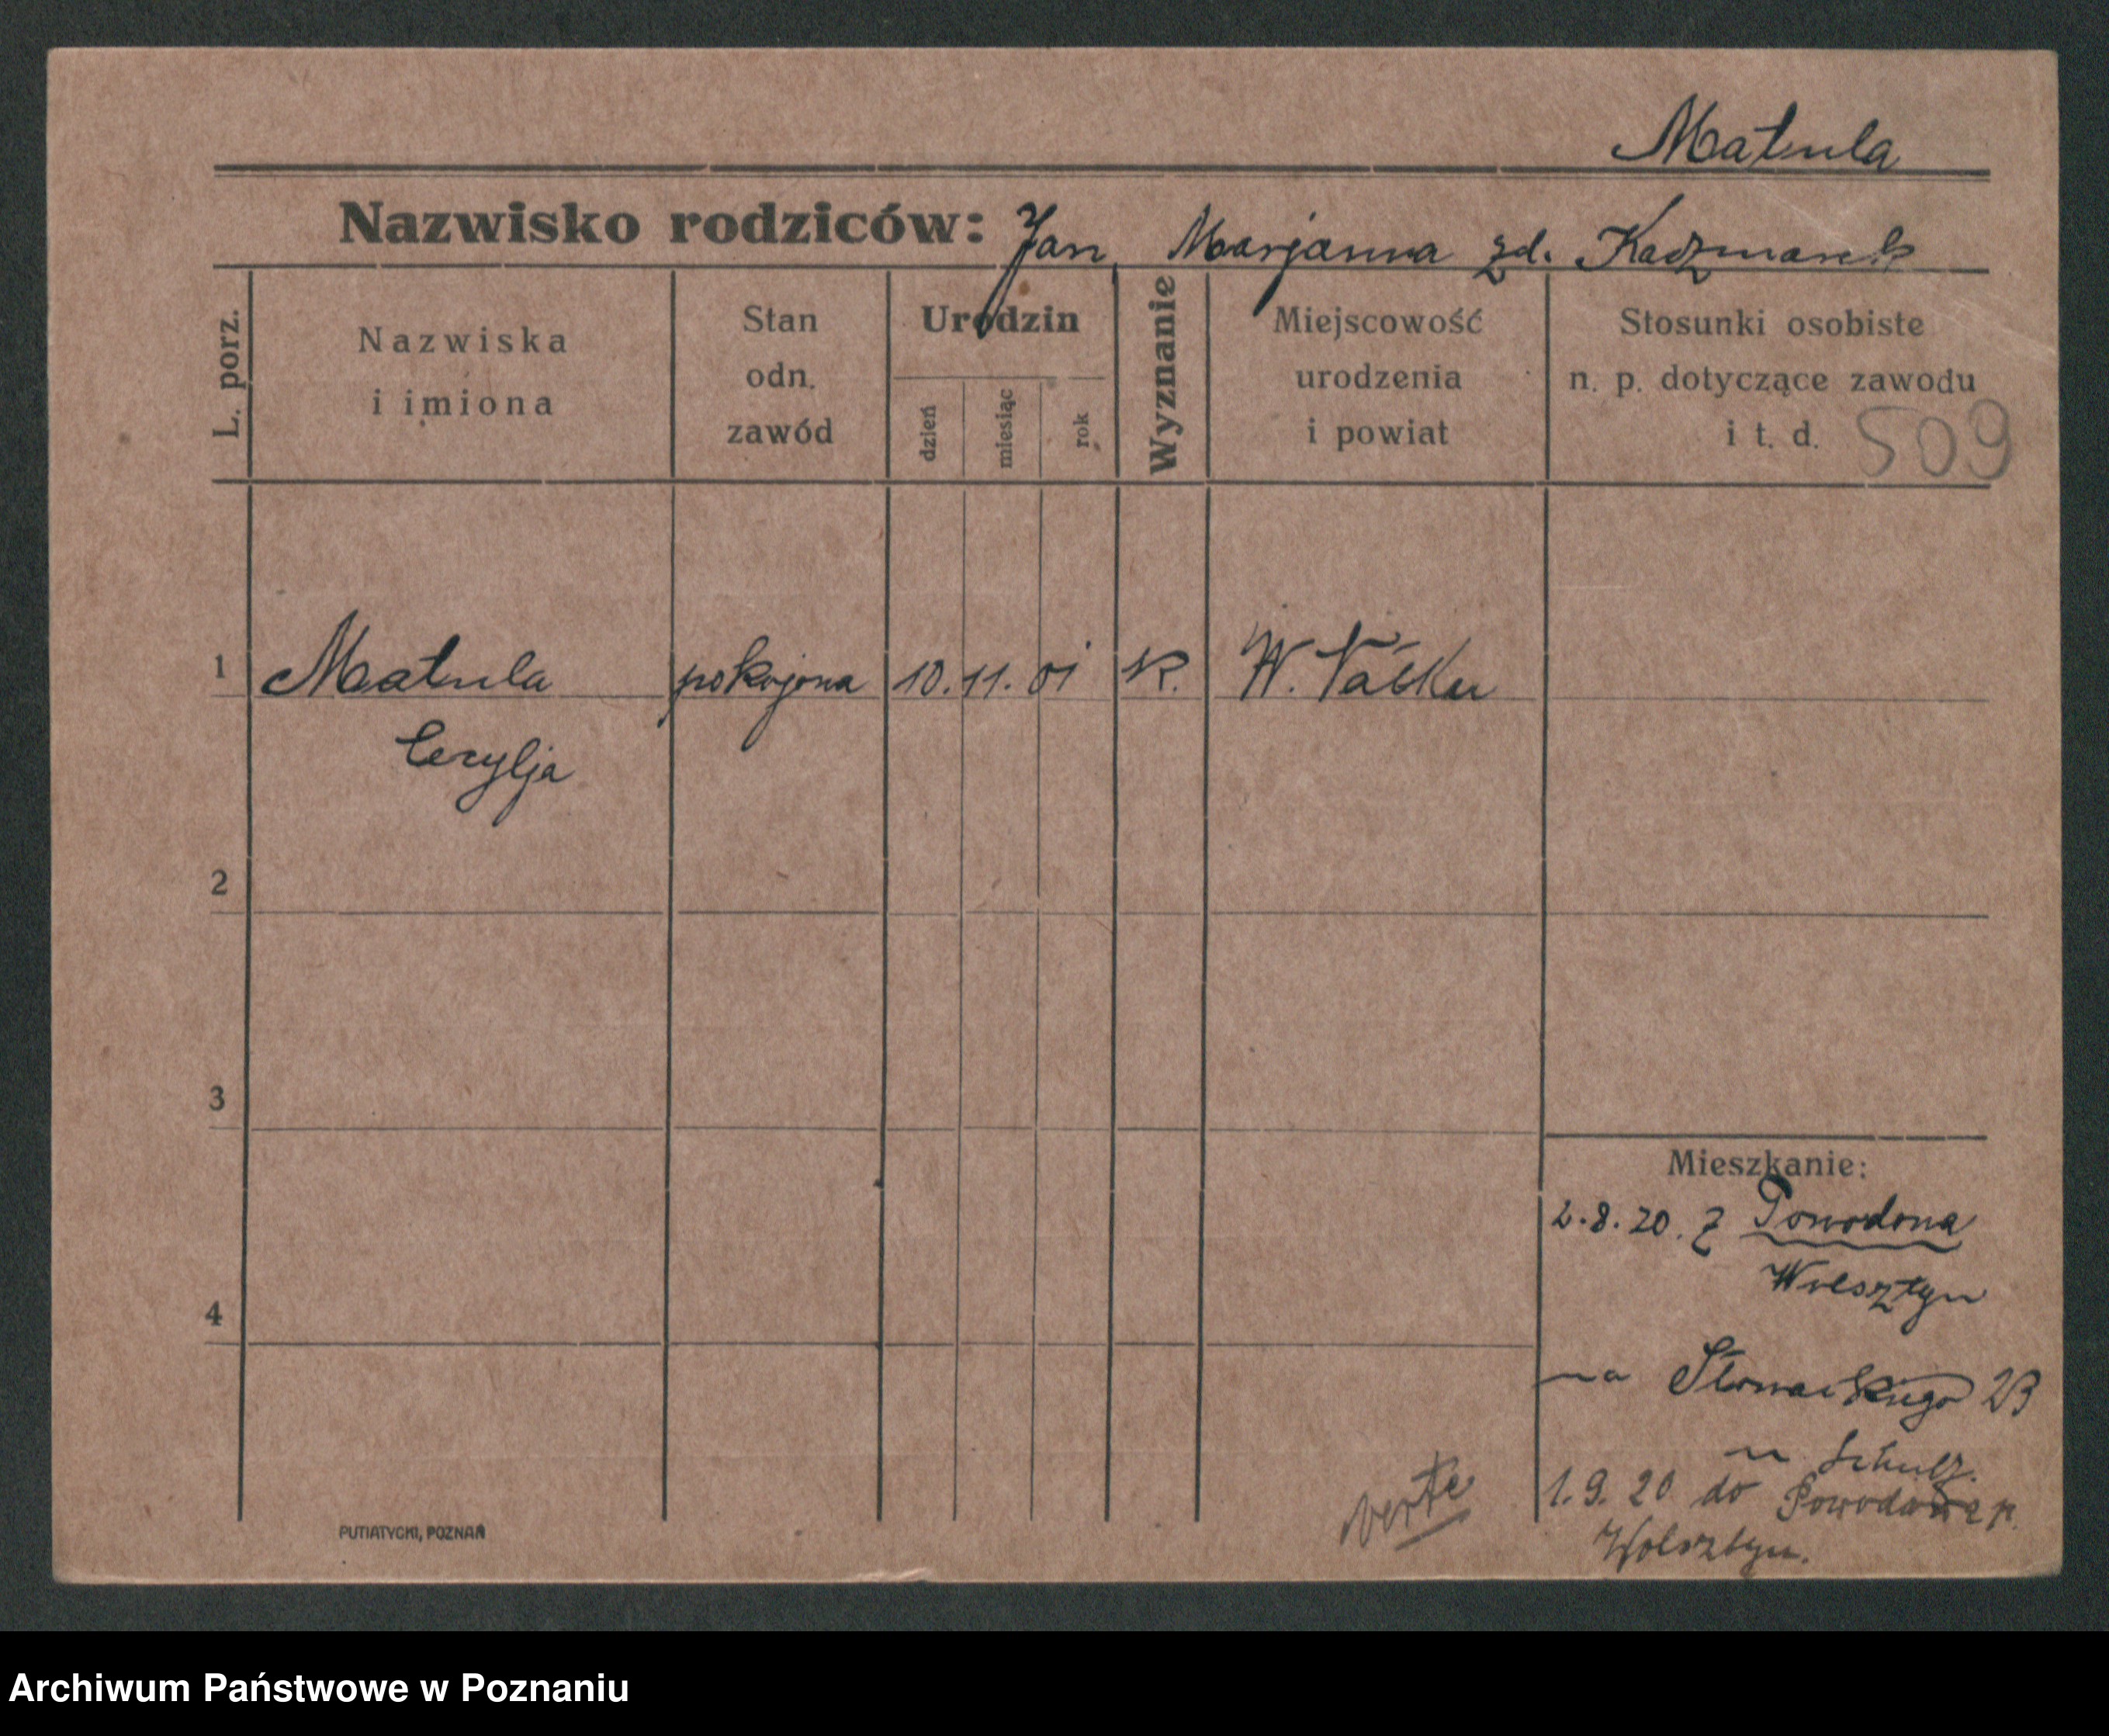 Matula
Nazwisko rodziców: Jan, Marjanna zd. Kaczmarek
L. porz.
Nazwiska
i imiona
Stan
odn.
zawód
Urodzin
dzień
miesiąc
rok
Wyznanie
Miejscowość
urodzenia
i powiat
Stosunki osobiste
n. p. dotyczące zawodu
i t. d.
509
1 Matula pokojowa 10. 11. 01 K. W.
Cecylja
2
3
4
Mieszkanie:
2.8.20. z Powodowa
Wolsztyn
na Słowackiego 23
u Schulz.
1.9.20 do Powodowa p.
Wolsztyn.
verte
PUTIATYCKI, POZNAŃ
Archiwum Państwowe w Poznaniu